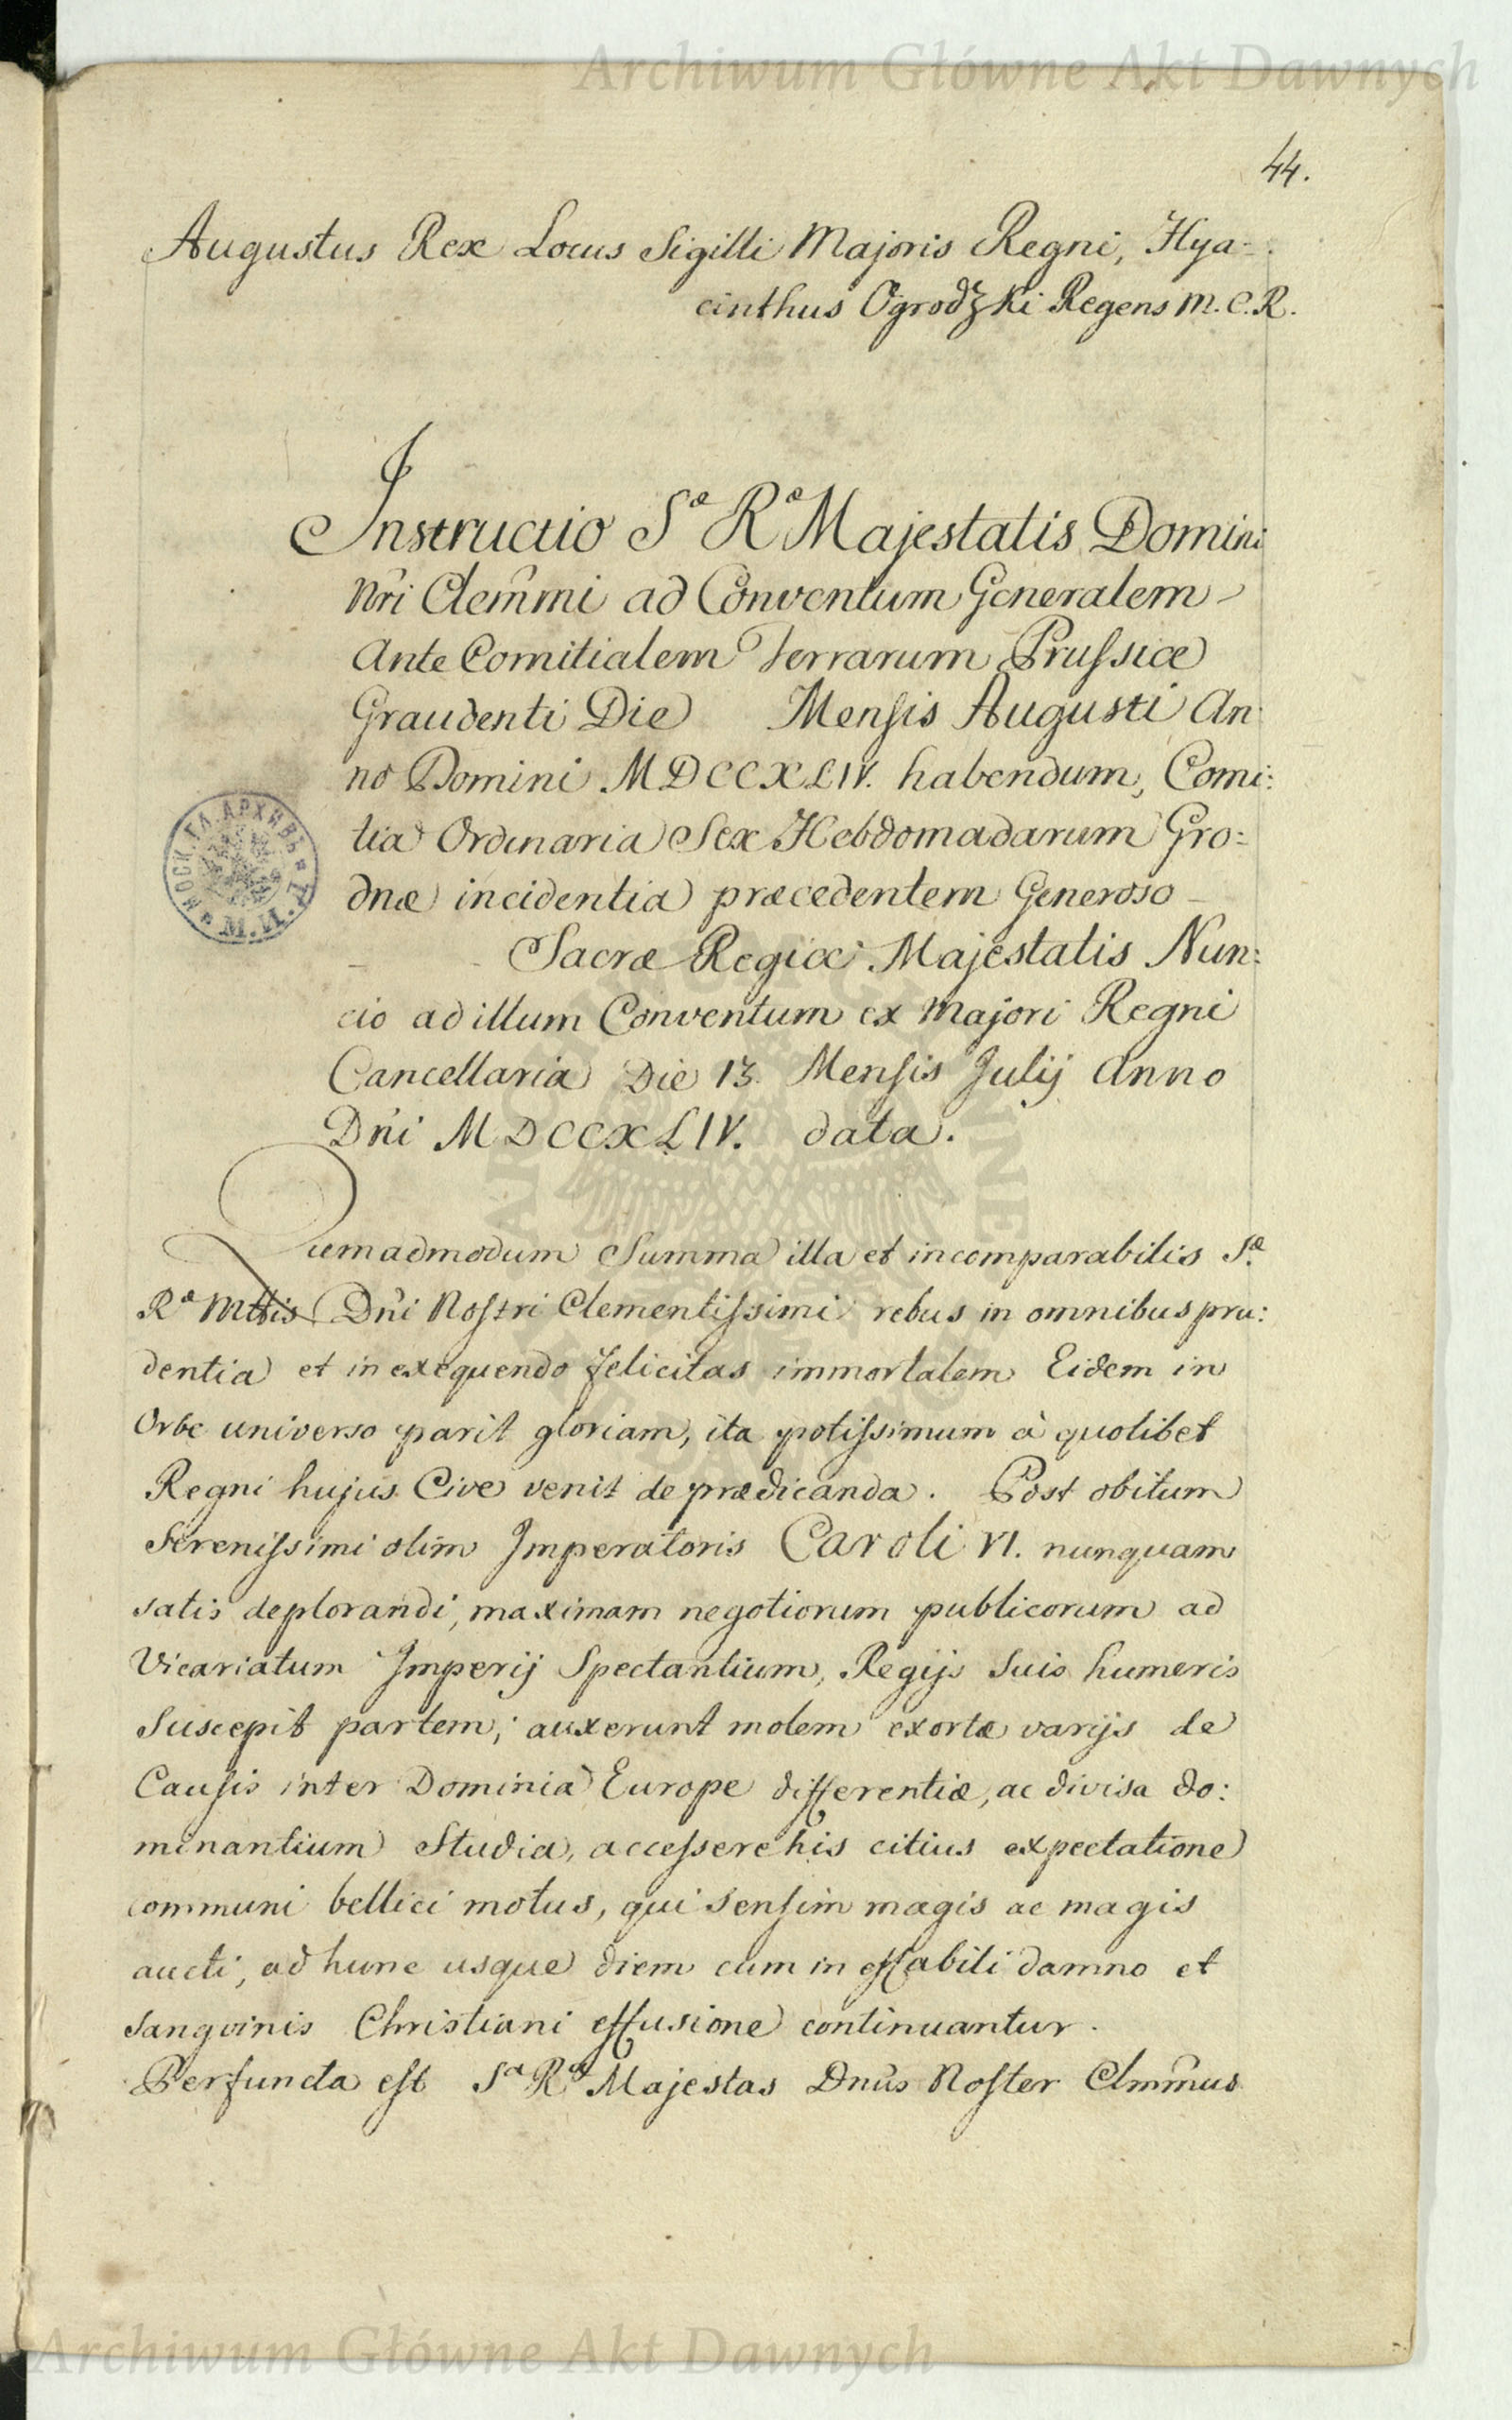 Archiwum Główne Akt Dawnych
44.
Augustus Rex Locus Sigilli Majoris Regni, Hya=
cinthus Ogrodzki Regens M. C. R.
Instructio Sᵃ Rᵃ Majestatis Domini
Nri Clemmi ad Conventum Generalem
Ante Comitialem Terrarum Prussiæ
Graudenti Die Mensis Augusti An:
no Domini MDCCXLIV. habendum, Comi:
tia Ordinaria Sex Hebdomadarum Gro=
dnæ incidentia præcedentem Generoso
Sacræ Regiæ Majestatis Nun:
cio ad illum Conventum ex Majori Regni
Cancellaria Die 13. Mensis Julij Anno
Dni MDCCXLIV. data.
Quemadmodum Summa illa et incomparabilis Sᵃ
Rᵃ Mttis Dni Nostri Clementissimi rebus in omnibus pru:
dentia et in exequendo felicitas immortalem Eidem in
Orbe universo parit gloriam, ita potissimum à quolibet
Regni hujus Cive venit deprædicanda. Post obitum
Serenissimi olim Imperatoris Caroli VI. nunquam
satis deplorandi, maximam negotiorum publicorum ad
Vicariatum Imperij Spectantium, Regijs Suis humeris
Suscepit partem; auxerunt molem exortæ varijs de
Causis inter Dominia Europe differentiæ, ac divisa do:
minantium Studia, accessere his citius expectatione
communi bellici motus, qui sensim magis ac magis
aucti, ad hunc usque diem cum ineffabili damno et
Sangvinis Christiani effusione continuantur.
Perfuncta est Sᵃ Rᵃ Majestas Dnus Noster Clmmus
МОСК. ГЛ. АРХИВЪ М. И. Д.
Archiwum Główne Akt Dawnych